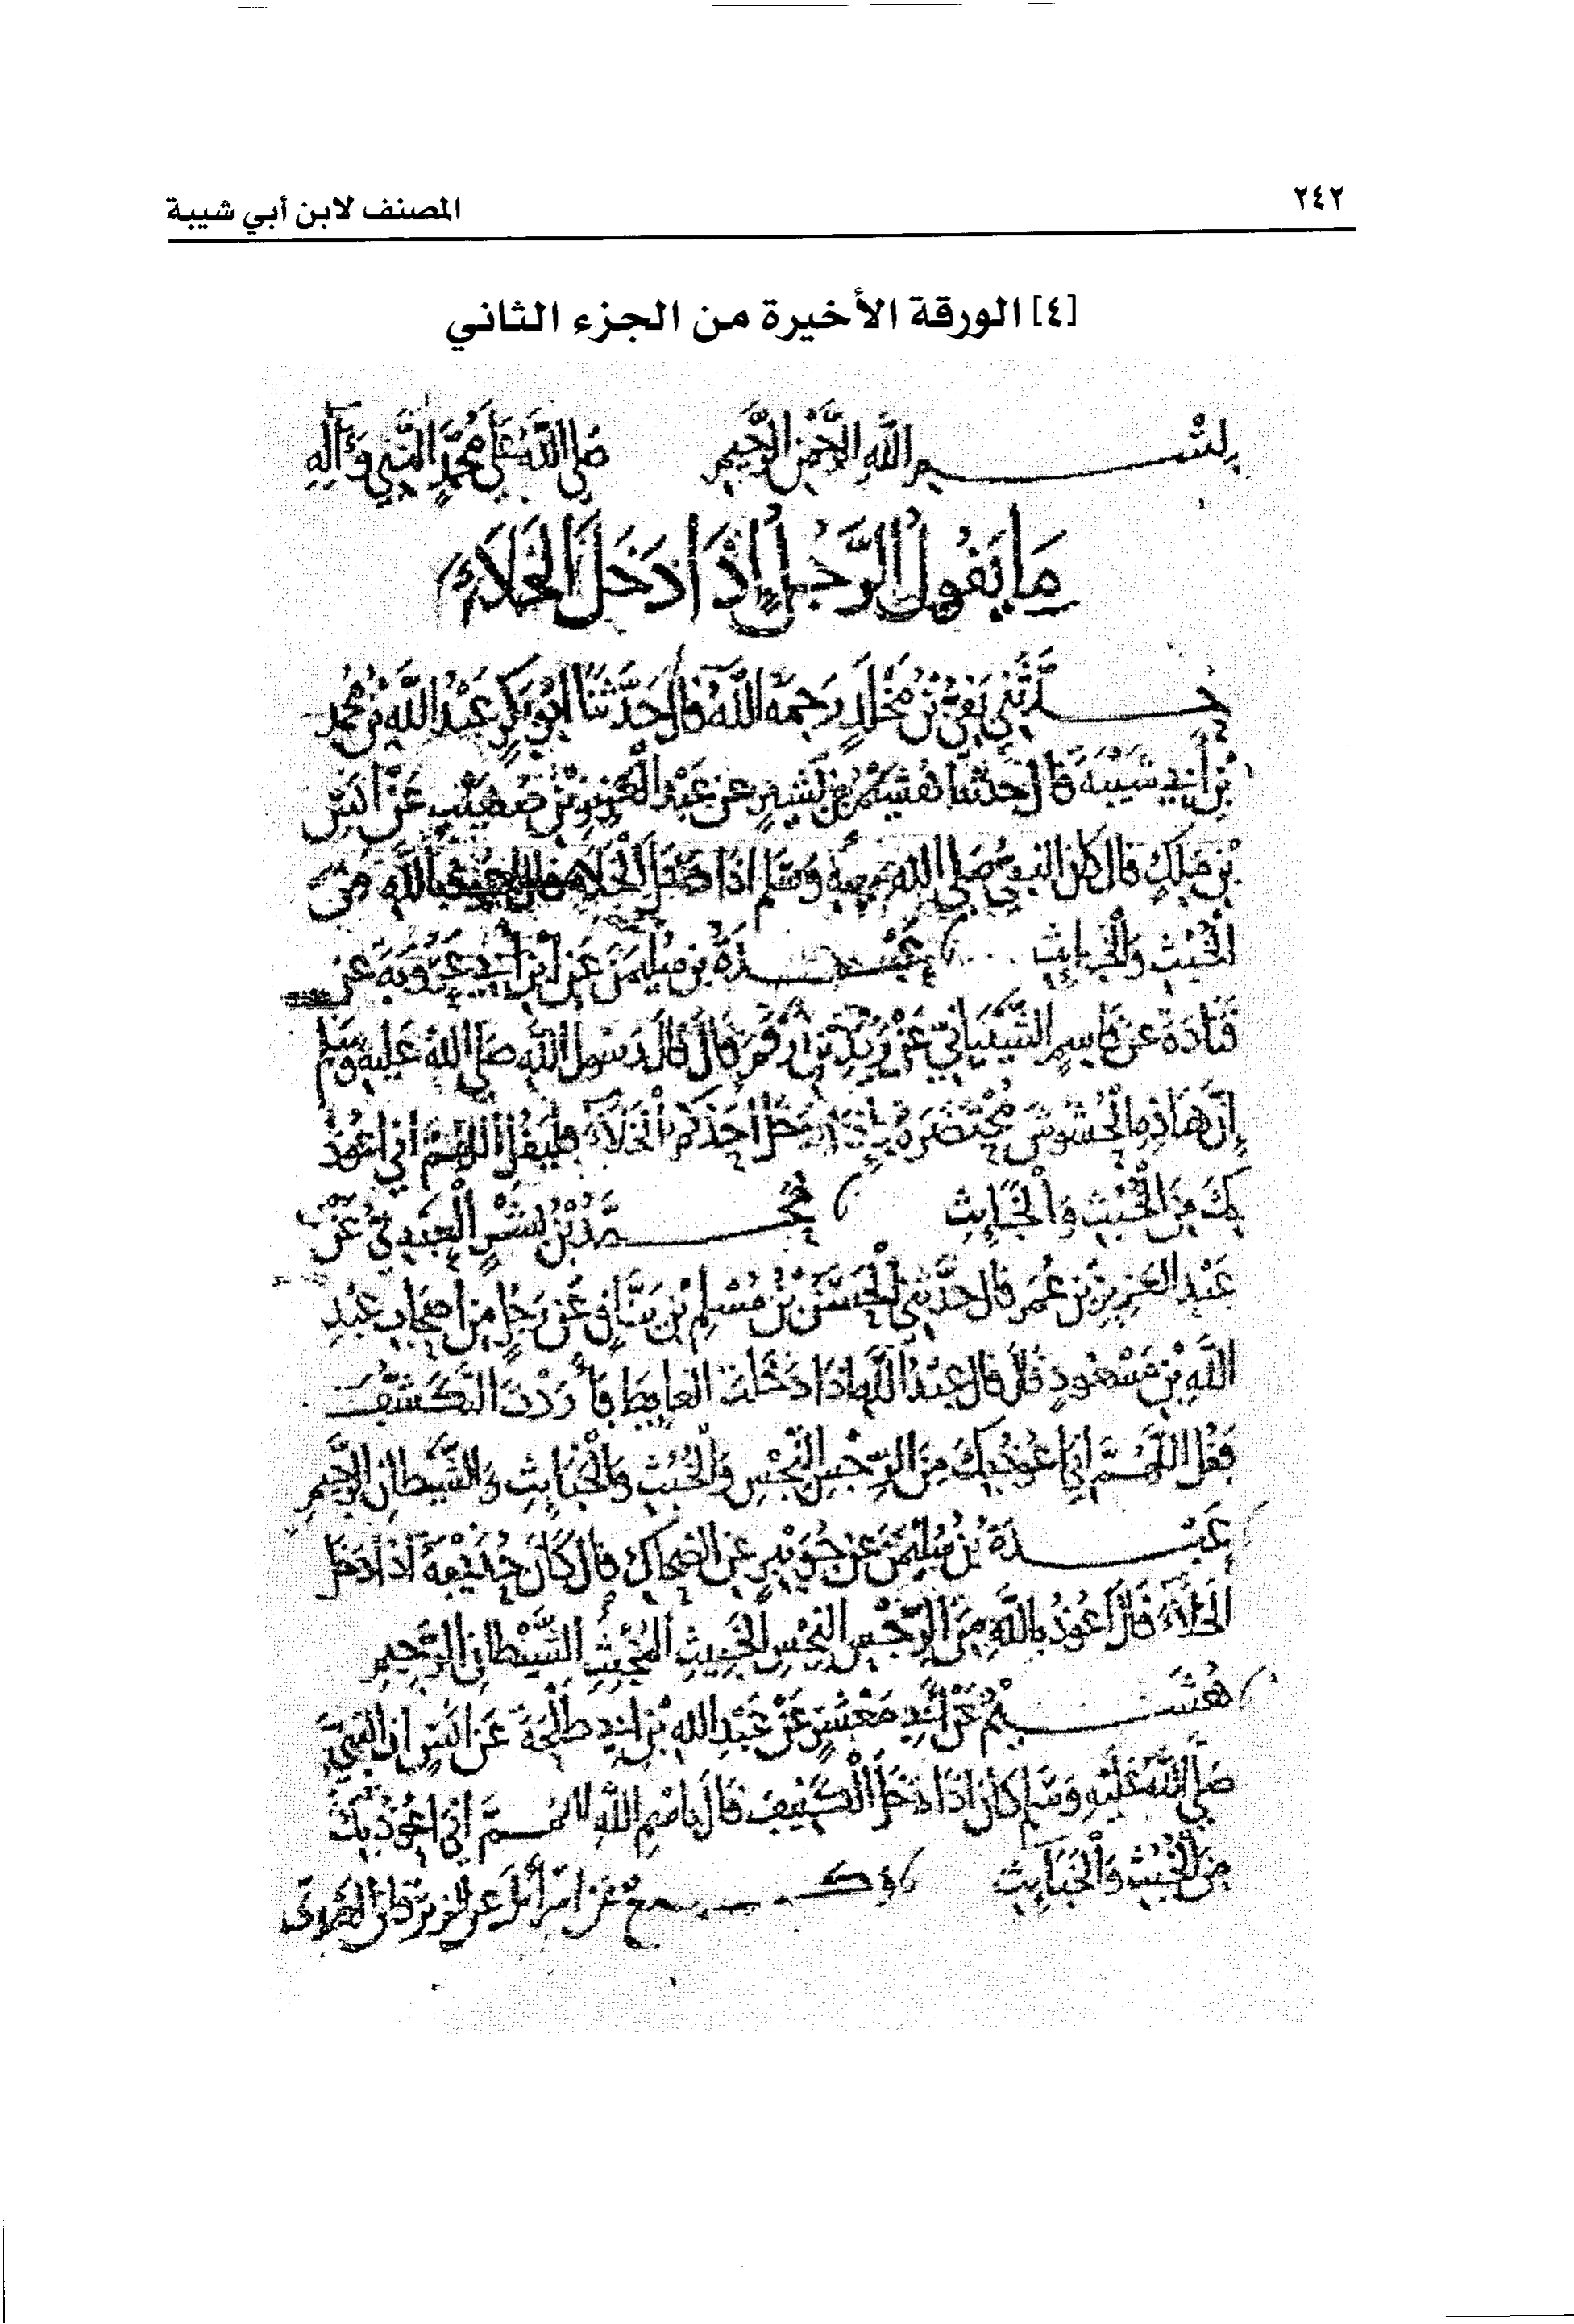 ٢٤٢
المصنف لابن أبي شيبة
[٤] الورقة الأخيرة من الجزء الثاني
بسم الله الرحمن الرحيم صلى الله على محمد النبي وآله
ما يقول الرجل إذا دخل الخلاء
حدثني بقي بن مخلد رحمه الله قال حدثنا أبو بكر عبد الله بن محمد
بن أبي شيبة قال حدثنا هشيم بن بشير عن عبد العزيز بن صهيب عن أنس
بن ملك قال كان النبي صلى الله عليه وسلم إذا دخل الخلاء قال أعوذ بالله من
الخبث والخبايث عبدة بن سليمن عن ابن أبي عروبة عن
قتادة عن قاسم الشيباني عن زيد بن أرقم قال قال رسول الله صلى الله عليه وسلم
إن هاذه الحشوش محتضرة فإذا دخل أحدكم الخلاء فليقل اللهم إني أعوذ
بك من الخبث والخبايث محمد بن بشر العبدي عن
عبد العزيز بن عمر قال حدثني الحسن بن مسلم بن يناق عن رجل من أصحاب عبد
الله بن مسعود قال قال عبد الله إذا دخلت الغايط فأردت التكشف
فقل اللهم إني أعوذ بك من الرجس النجس والخبث والخبايث والشيطان الرجيم
عبدة بن سليمن عن جويبر عن الضحاك قال كان حذيفة إذا دخل
الخلاء قال أعوذ بالله من الرجس النجس الخبيث المخبث الشيطان الرجيم
هشيم عن أبي معشر عن عبد الله بن أبي طلحة عن أنس أن النبي
صلى الله عليه وسلم كان إذا دخل الكنيف قال باسم الله اللهم إني أعوذ بك
من الخبث والخبايث وكيع عن إسرائيل عن الزبرقان العبدي